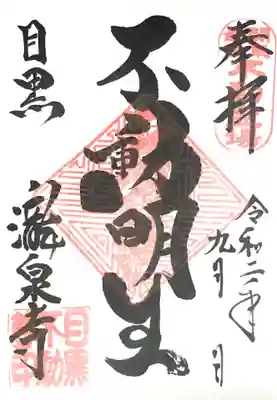 奉拝
令和二年九月 日
不動明王
目黒
瀧泉寺
目黒不動